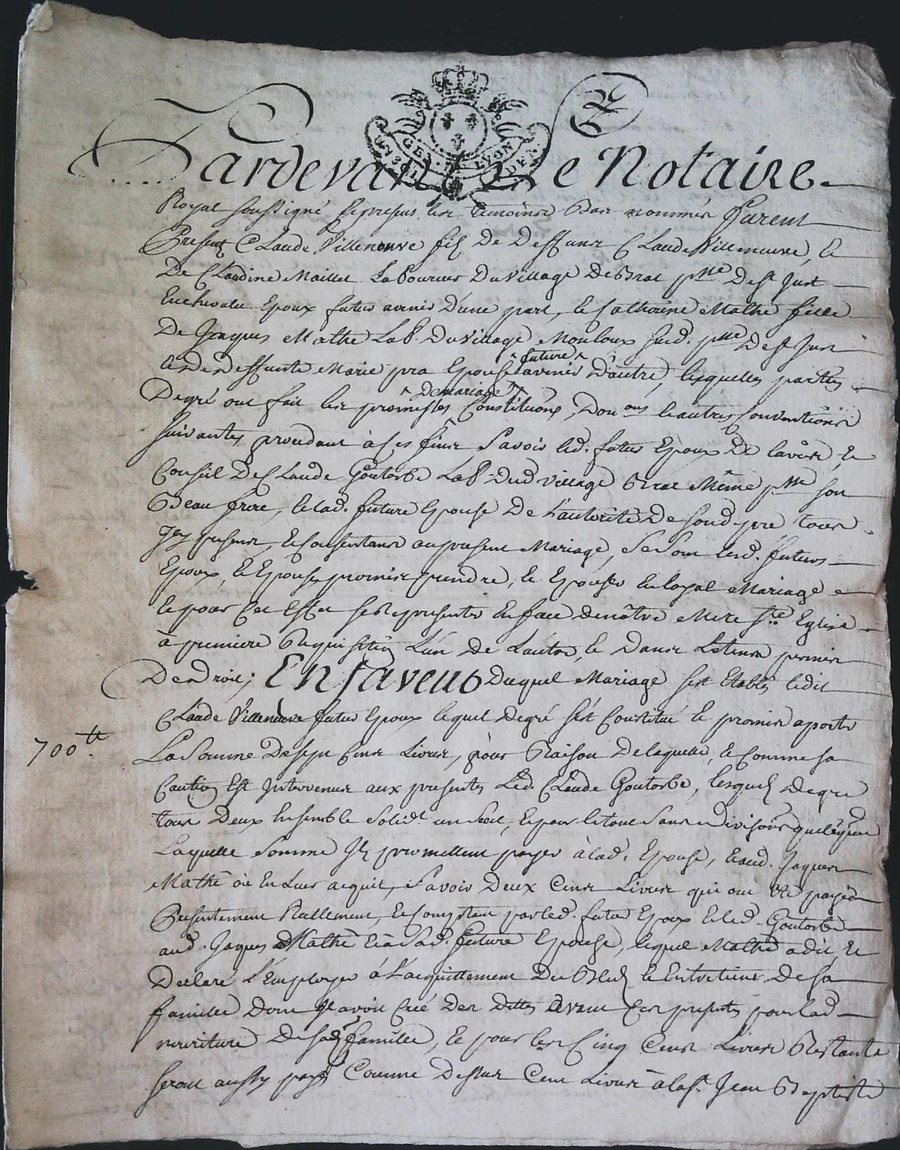 GEN. DE LYON
Pardevant Le Notaire
Royal soussigné les temoins Bas nommés furent
Presents Claude Villeneuve fils de deffunt Claude Villeneuve, et
De Claudine Maillet Laboureur Du village De St Just
En chevalet Epoux futur avenir D'une part, et Catherine Mathé fille
De Jaques Mathé Lab. Du village Mouloux susd. psse De St Just
et de deffunte Marie pra Epouse future avenir D'autre, lesquelles parties
Degré ont fait les promesses De mariage Constitutions, Donons et autres Conventions
suivantes procedant à ces fins savoir led. futur Epoux De l'avis, et
Conseil De Claude Goutorbe Lab. Dud village même psse son
Beau frere, et lad. future Epouse De L'autorité De sond. pre tous
Icy presents, et Consentans au present Mariage, se sont lesd. futurs
Epoux, et Epouse promis prendre, et Epouser en loyal Mariage
et pour cet Effet se representer En face de nôtre Mere Ste Eglise
à premiere Requisition L'un De L'autre, et Dans Le tems permis
De droit; En faveur Duquel Mariage s'est Etably ledit
Claude Villeneuve futur Epoux lequel Degré s'est Constitué et promis aporter
700tt
La somme De sept Cens Livres, pour Raison De laquelle, et Comme sa
Caution Est Intervenu aux presentes Led. Claude Goutorbe, lesquels Degré
tous Deux Ensemble solidt un seul, et pour le tout sans Division quelconque
Laquelle somme Ils promettent payer à lad. Epouse, et aud. Jaques
Mathé où En Leur acquit, savoir Deux Cens Livres qui ont été payées
Presentement Reellement, et Comptant par led. futur Epoux et led. Goutorbe
aud. Jaques Mathé et à sad. future Epouse, lequel Mathé a dit et
Declaré L'Employer à L'acquittement Du Bled et Entretiens De sa
famille Dont Il avoit créé Des Dettes avant Ces presentes pour lad.
nourriture De sad. famille, et pour les Cinq Cens Livres Restants
seront aussy payés Comme Dessus Cent Livres à la St Jean Baptiste